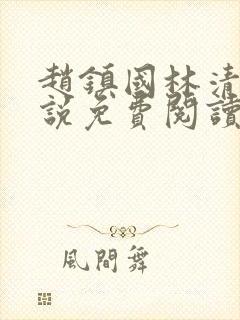 趙鎮國林清
說免費閱讀
風間舞